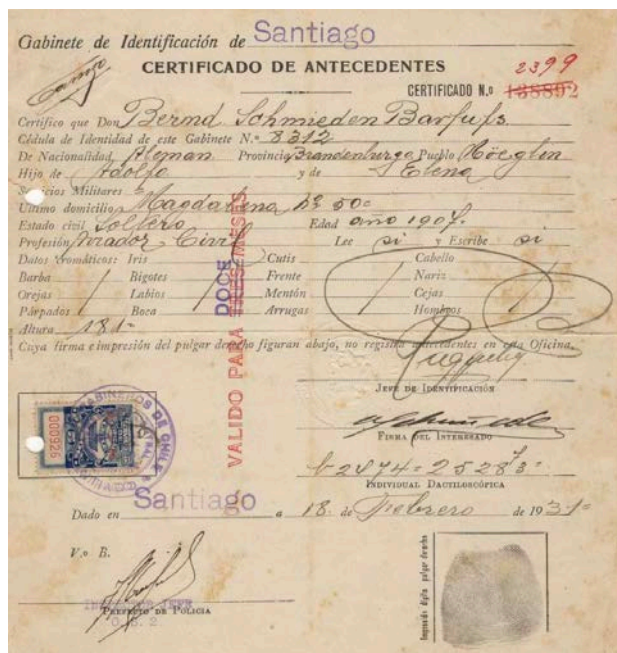 Gabinete de Identificación de Santiago
CERTIFICADO DE ANTECEDENTES
2399
CERTIFICADO N.o 138892
Certifico que Don Bernd Schmieden Barfufs
Cédula de Identidad de este Gabinete N.o 8312
De Nacionalidad Aleman Provincia Brandenburgo Pueblo
Hijo de Adolfo y de Elena
Servicios Militares
Ultimo domicilio Magdalena No 50
Estado civil Soltero Edad año 1907
Profesión Civil Lee si y Escribe si
Datos Cromáticos: Iris Cutis Cabello
Barba Bigotes Frente Nariz
Orejas Labios Mentón Cejas
Párpados Boca Arrugas Hombros
Altura 181
Cuya firma e impresión del pulgar derecho figuran abajo, no registra antecedentes en esta Oficina.
VALIDO PARA TRES MESES
DOCE
JEFE DE IDENTIFICACIÓN
FIRMA DEL INTERESADO
INDIVIDUAL DACTILOSCÓPICA
CARABINEROS DE CHILE
000926
Dado en Santiago a 18 de Febrero de 1931
V.o B.
JEFE
PREFECTO DE POLICIA
O. S. 2.
Impresión dígito pulgar derecho